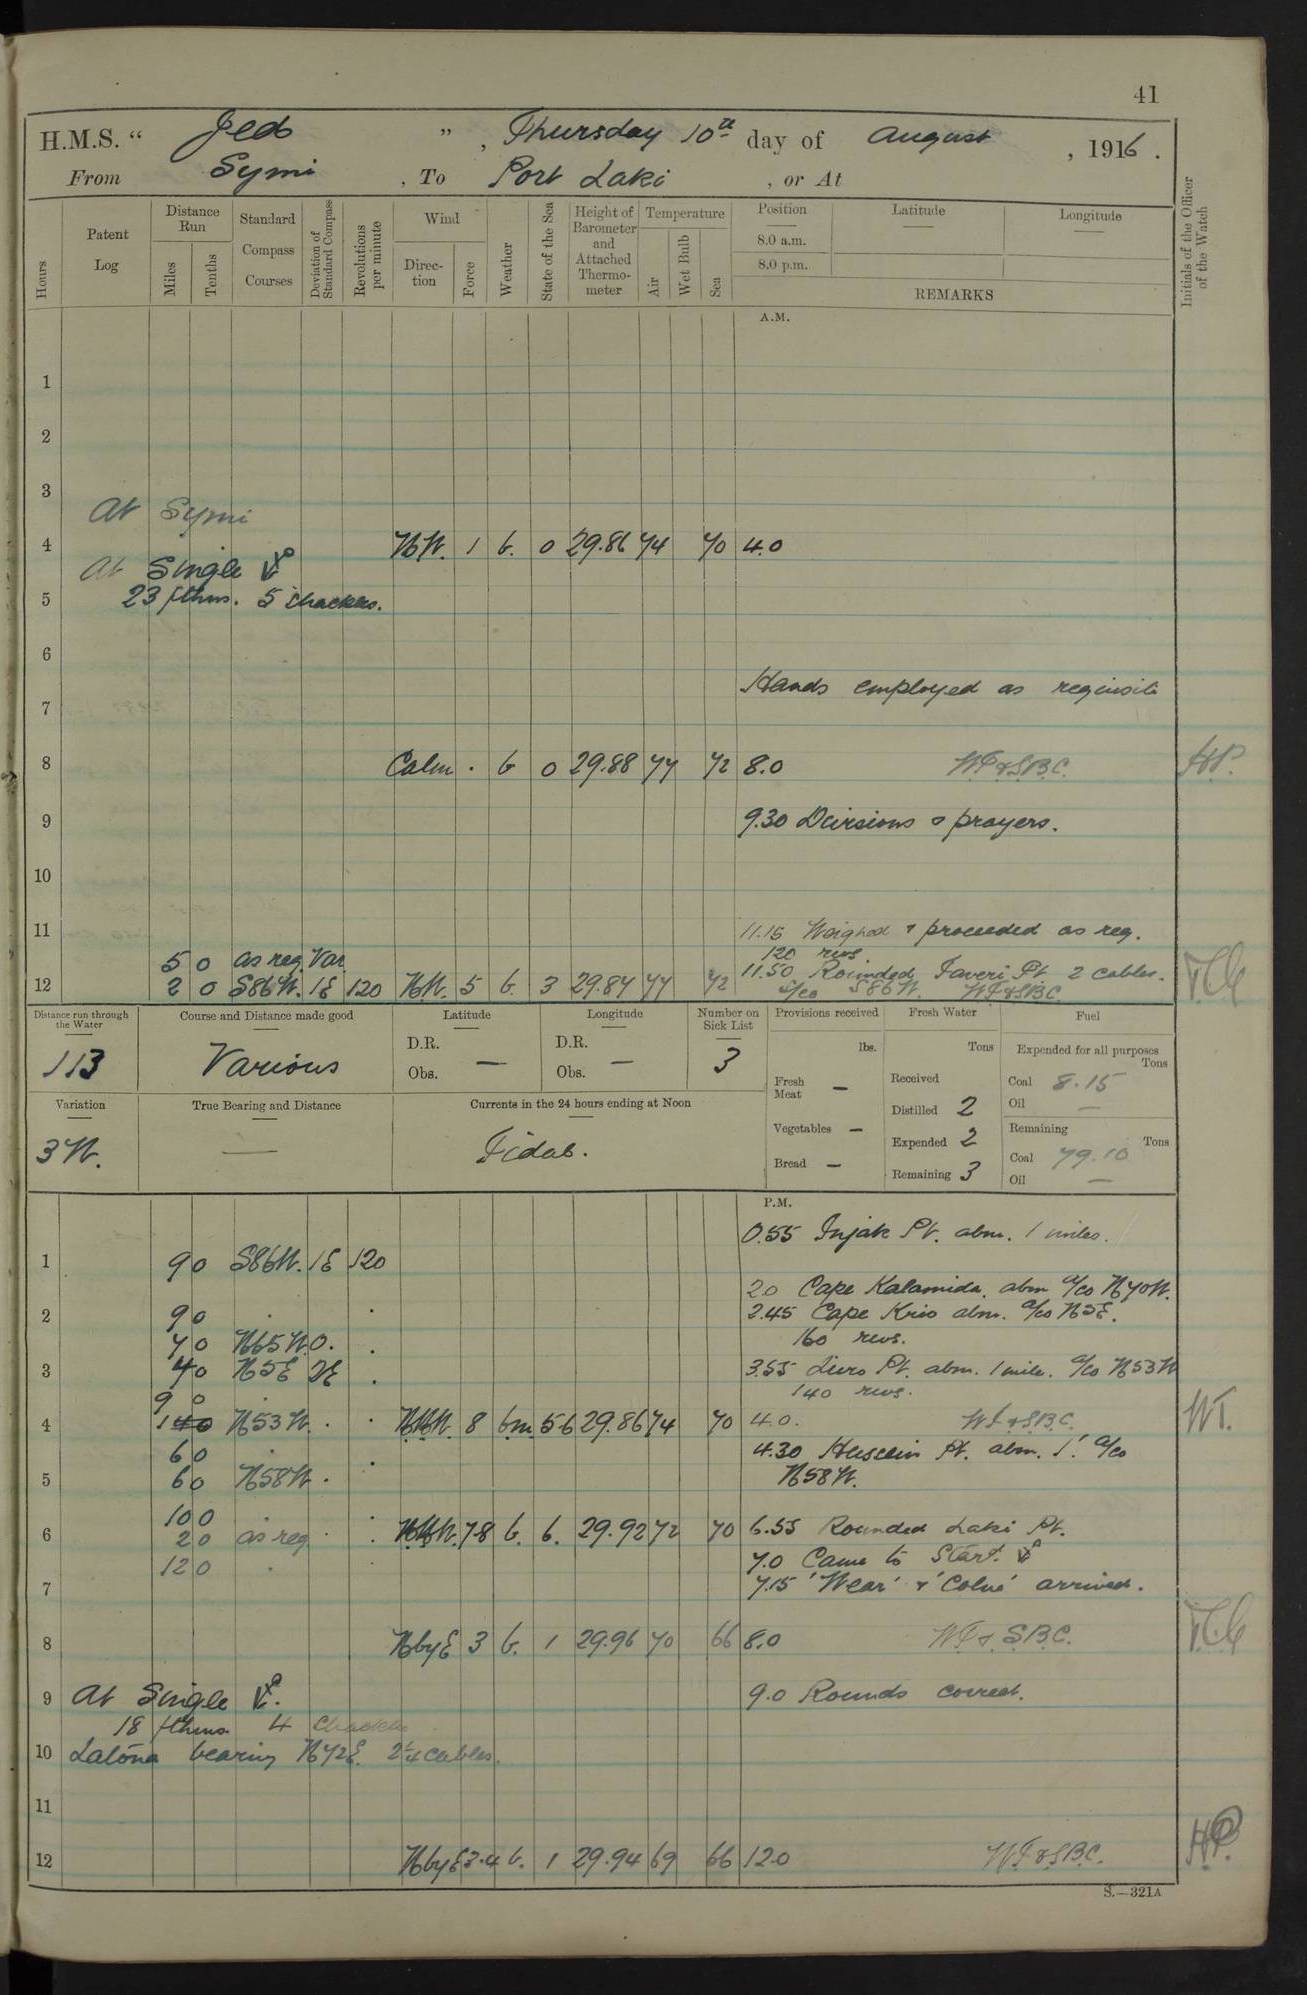 41
H.M.S. “ Jed ” , Thursday 10th day of August , 1916 .
From Symi , To Port Laki , or At
Hours
Patent Log
Distance Run
Miles
Tenths
Standard Compass Courses
Deviation of Standard Compass
Revolutions per minute
Wind
Direction
Force
Weather
State of the Sea
Height of Barometer and Attached Thermometer
Temperature
Air
Wet Bulb
Sea
Position
8.0 a.m.
8.0 p.m.
Latitude
Longitude
REMARKS
Initials of the Officer of the Watch
A.M.
1
2
3
At Symi
4 NW. 1 b. 0 29.86 74 70 4.0
At Single
5 23 fthms. 5 shackles.
6
Hands employed as requisite
7
8 Calm . b 0 29.88 77 72 8.0 WT & SBC. HP.
9 9.30 Divisions & prayers.
10
11 11.15 Weighed & proceeded as req.
120 revs
5 0 as req. Var 11.50 Rounded Taveri Pt 2 cables.
12 2 0 S86W. 1E 120 NW. 5 b. 3 29.84 77 72 a/co S86W. WT&SBC
Distance run through the Water
113
Course and Distance made good
Various
Latitude
D.R.
Obs. —
Longitude
D.R.
Obs. —
Number on Sick List
3
Provisions received
lbs.
Fresh Meat —
Vegetables —
Bread —
Fresh Water
Tons
Received
Distilled 2
Expended 2
Remaining 3
Fuel
Expended for all purposes
Tons
Coal 8.15
Oil —
Remaining
Tons
Coal 79.10
Oil —
Variation
3 W.
True Bearing and Distance
—
Currents in the 24 hours ending at Noon
Tidal.
P.M.
0.55 Injak Pt. abm. 1 miles.
1 9 0 S86W. 1E 120
2.0 Cape Kalamida. abm a/co N70W.
2 9 0 . . 2.45 Cape Krio abm. a/co N5E.
7 0 N65W 0. . 160 revs.
3 4 0 N5E 2E . 3.55 Livro Pt. abm. 1 mile. a/co N53W
9 0 . 140 revs.
4 1 40 N53W. . . NNW. 8 bm. 5-6 29.86 74 70 4.0. WT&SBC. WT.
6 0 . . 4.30 Hussein Pt. abm. 1'. a/co
5 6 0 N58W . N58W.
10 0 . .
6 2 0 as req . . NNW. 7-8 b. 6. 29.92 72 70 6.55 Rounded Laki Pt.
12 0 . 7.0 Came to Starb.
7 7.15 'Wear' & 'Colne' arrived.
8 NbyE 3 b. 1 29.96 70 66 8.0 WT & SBC.
9 At Single . 9.0 Rounds correct.
18 fthms. 4 shackles
10 Latona bearing N72E. 2¼ cables.
11
12 NbyE 3-4 b. 1 29.94 69 66 12.0 WT&SBC. HP.
S.—321A